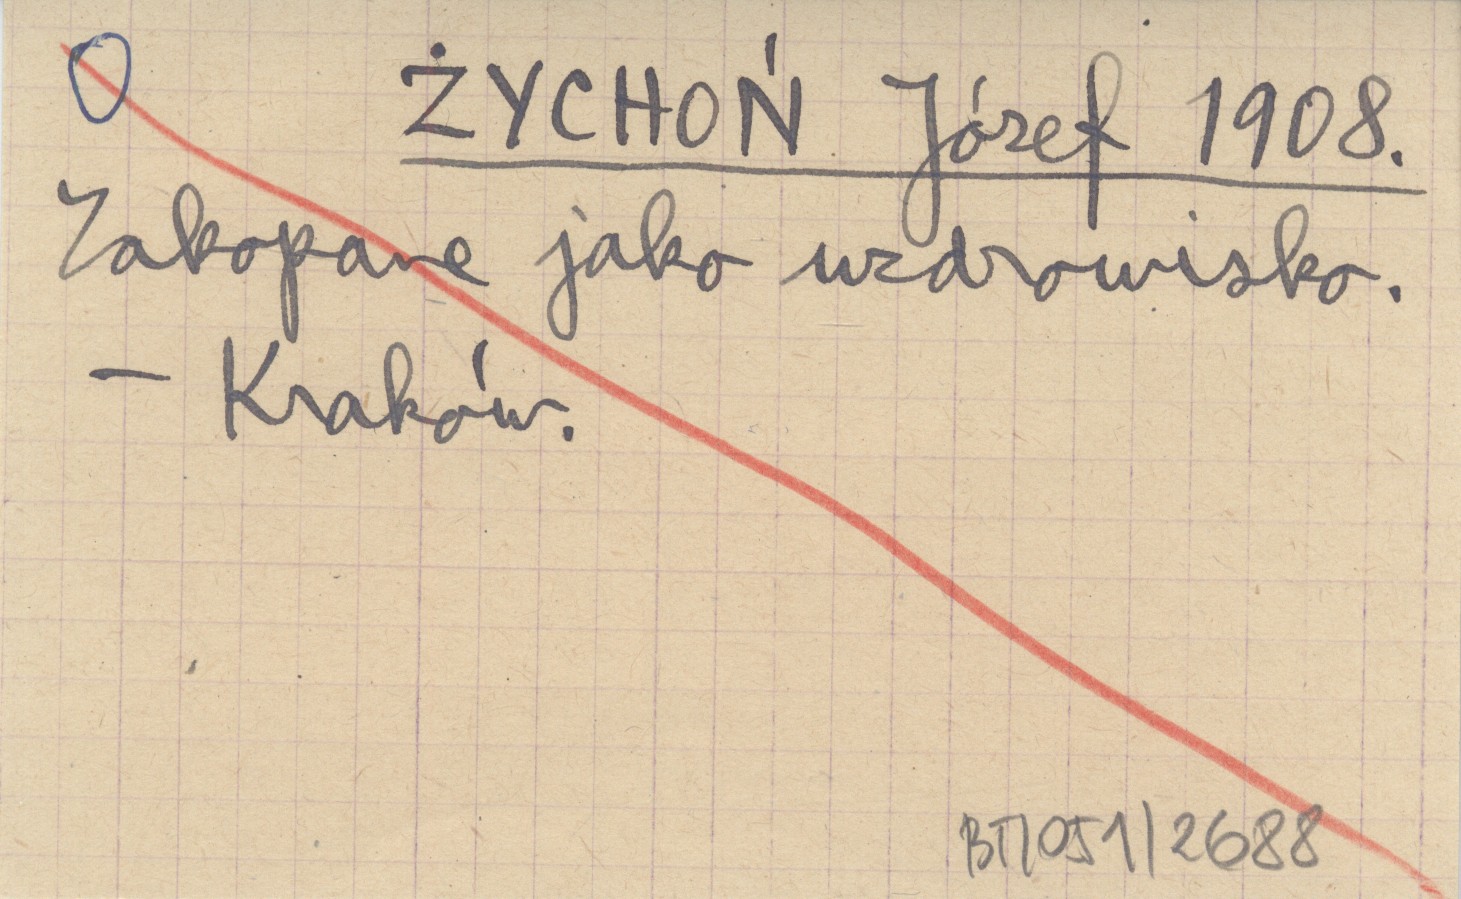 ŻYCHOŃ Józef 1908.
Zakopane jako uzdrowisko.
— Kraków.
BT/051/2688